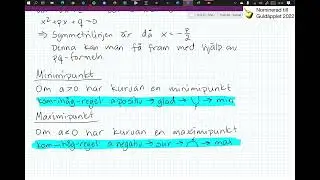 Nominerad till
Guldäpplet 2022
x²+px+q=0
⇒ Symmetrilinjen är då x=-p/2
Denna kan man få fram med hjälp av
pq-formeln.
Minimipunkt
Om a>0 har kurvan en minimipunkt
kom-ihåg-regel: a positiv → glad → ∪ → min
Maximipunkt
Om a<0 har kurvan en maximipunkt
kom-ihåg-regel: a negativ → sur → ∩ → max